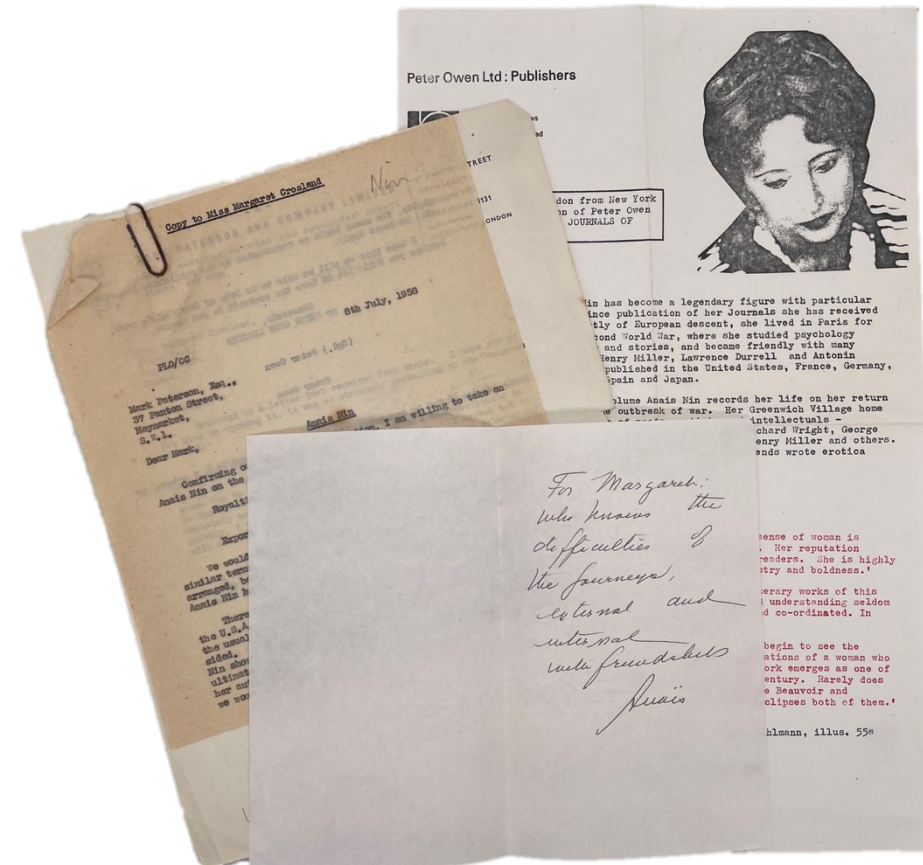 Peter Owen Ltd : Publishers
TREET
1131
ONDON
don from New York
on of Peter Owen
JOURNALS OF
in has become a legendary figure with particular
ince publication of her Journals she has received
tly of European descent, she lived in Paris for
cond World War, where she studied psychology
and stories, and became friendly with many
Henry Miller, Lawrence Durrell and Antonin
published in the United States, France, Germany,
Spain and Japan.
olume Anais Nin records her life on her return
e outbreak of war. Her Greenwich Village home
intellectuals -
chard Wright, George
enry Miller and others.
ends wrote erotica
sense of woman is
. Her reputation
readers. She is highly
stry and boldness.'
terary works of this
d understanding seldom
d co-ordinated. In
begin to see the
ations of a woman who
ork emerges as one of
entury. Rarely does
e Beauvoir and
clipses both of them.'
hlmann, illus. 55s
Copy to Miss Margaret Crosland
Nin
8th July, 1958
PLO/CC
Mark Paterson, Esq.,
37 Panton Street,
Haymarket,
S.W.1.
Dear Mark,
Anais Nin
I am willing to take on
Confirming
Anais Nin on the
Royalti
Expor
We would
similar term
arranged, be
Anais Nin b
There
the U.S.A.
the usual
sided.
Nin shou
ultimat
her au
we wou
For Margaret:
who knows the
difficulties of
the journeys,
external and
internal
with friendship
Anaïs